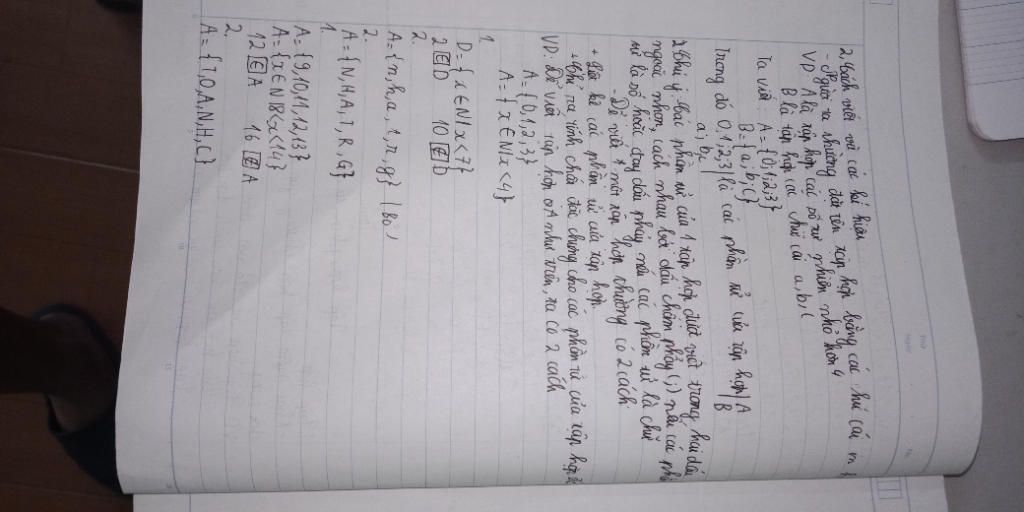 2. Cách viết và các kí hiệu
- Người ta thường đặt tên tập hợp bằng các chữ cái in
VD: A là tập hợp các số tự nhiên nhỏ hơn 4
B là tập hợp các chữ cái a, b, c
Ta viết: A = {0;1;2;3}
B = {a, b, c}
Trong đó 0,1,2,3 là các phần tử của tập hợp A
a, b, c B
2. Chú ý: Các phần tử của 1 tập hợp được viết trong hai dấu
ngoặc nhọn, cách nhau bởi dấu chấm phẩy (;) nếu các phần
tử là số hoặc dấu phẩy nếu các phần tử là chữ
- Để viết 1 tập hợp thường có 2 cách
+ Liệt kê các phần tử của tập hợp.
+ Chỉ ra tính chất đặc trưng cho các phần tử của tập hợp
VD: Để viết tập hợp A như trên, ta có 2 cách
A = {0,1,2,3}
A = {x ∈ N/x < 4}
1.
D = {x ∈ N/x < 7}
2 ∈ D 10 ∉ D
2.
A = {n, h, a, t, r, g} (Bỏ)
2.
A = {N, H, A, T, R, G}
1.
A = {9,10,11,12,13}
A = {x ∈ N/8 < x < 14}
12 ∈ A 16 ∉ A
2.
A = {T, O, A, N, H, C}